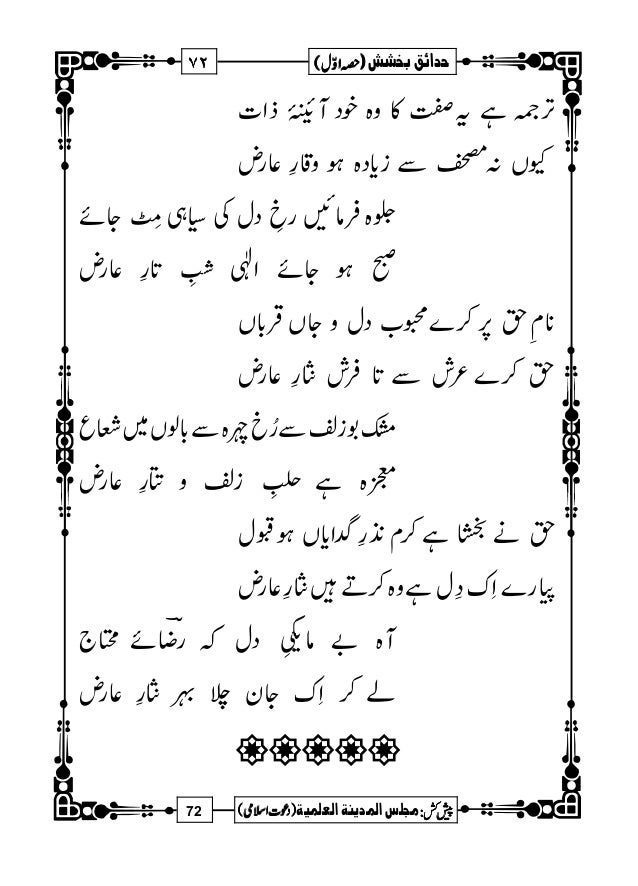 حدائق بخشش (حصہ اوّل)
۷۲
ترجمہ ہے یہ صفت کا وہ خود آئینۂ ذات
کیوں نہ مصحف سے زیادہ ہو وقارِ عارض
جلوہ فرمائیں رخِ دل کی سیاہی مِٹ جائے
صبح ہو جائے الٰہی شبِ تارِ عارض
نامِ حق پر کرے محبوب دل و جاں قرباں
حق کرے عرش سے تا فرش نثارِ عارض
مشک بو زلف سے رُخ چہرہ سے بالوں میں شعاع
معجزہ ہے حلبِ زلف و تتارِ عارض
حق نے بخشا ہے کرم نذرِ گدایاں ہو قبول
پیارے اِک دِل ہے وہ کرتے ہیں نثارِ عارض
آہ بے مایگیِ دل کہ رضؔائے محتاج
لے کر اِک جان چلا بہر نثارِ عارض
پیش کش: مجلس المدینۃ العلمیۃ (دعوت اسلامی)
72